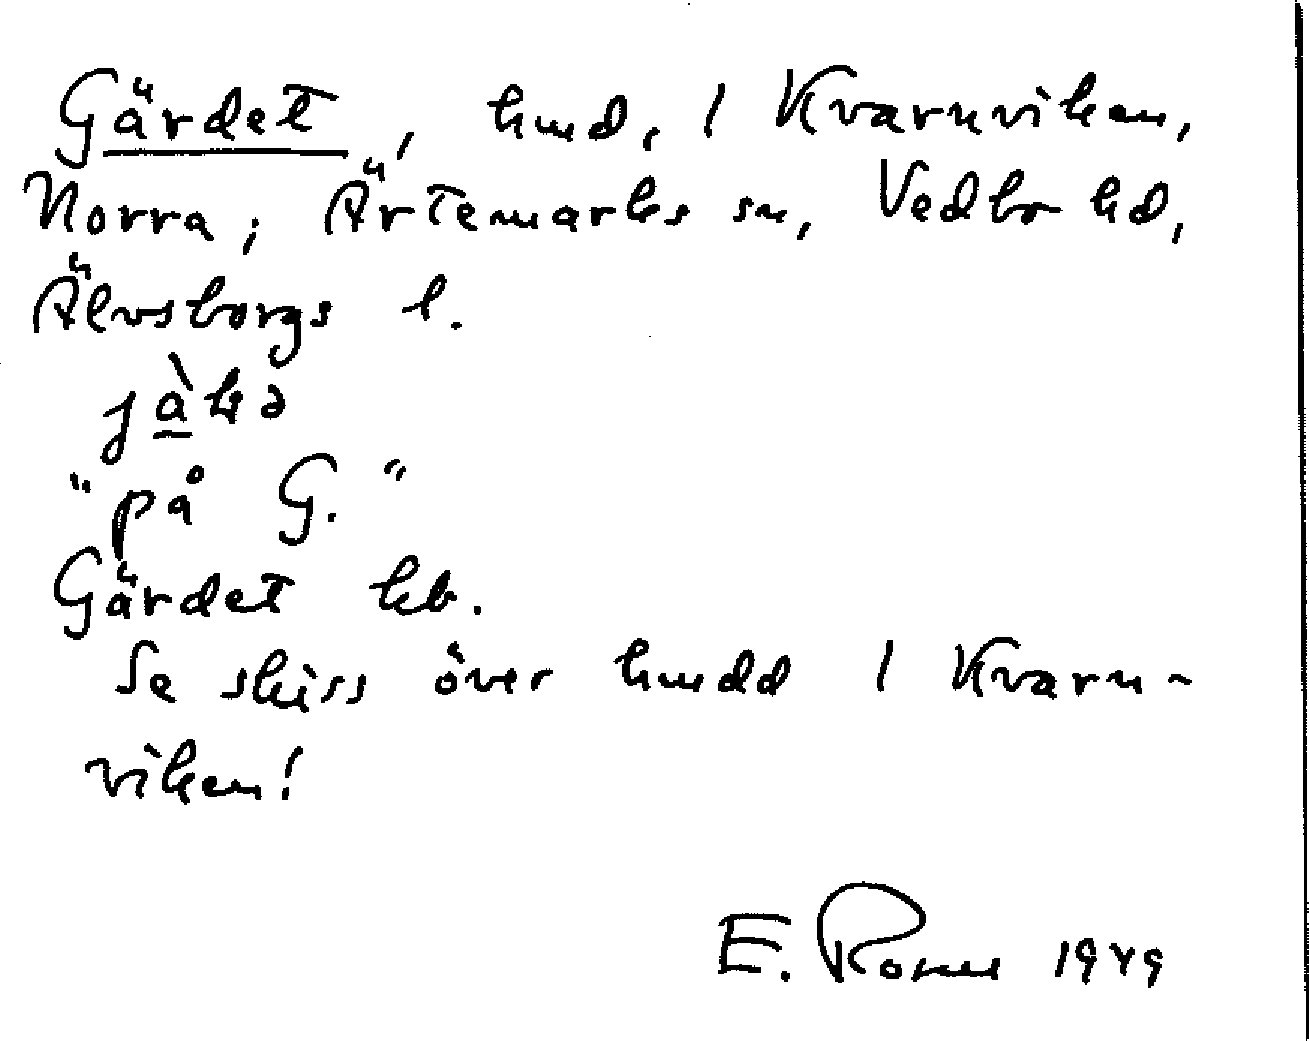 Gärdet, hmd, 1 Kvarnviken,
Norra; Ärtemarks sn, Vedbo hd,
Älvsborgs l.
"på G."
Gärdet kb.
Se skiss över hmdd 1 Kvarn-
viken!
E. 1949